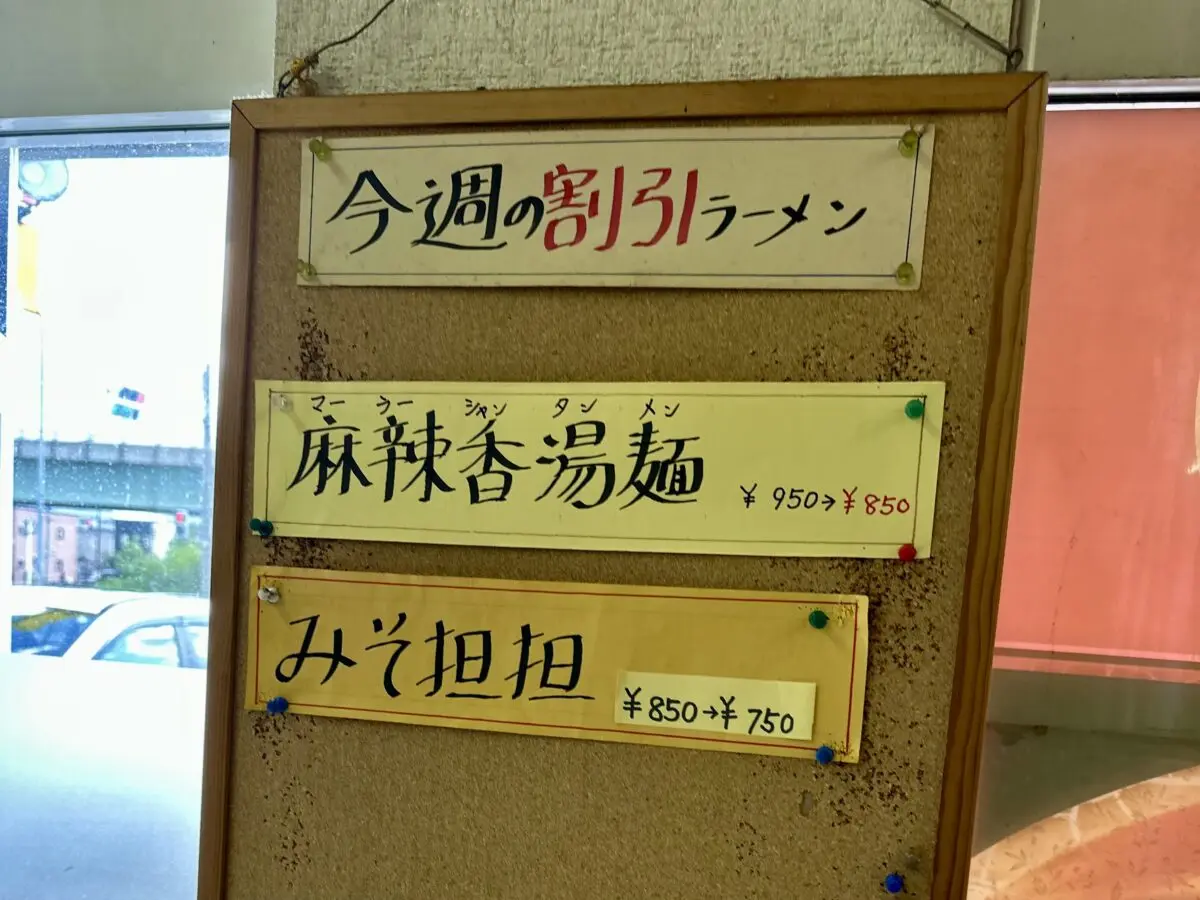 今週の割引ラーメン
マーラーシャンタンメン
麻辣香湯麺 ¥950→¥850
みそ担担 ¥850→¥750